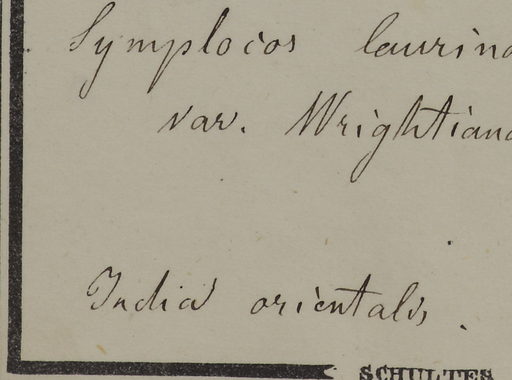 Symplocos laurina
var. Wrightiana
India orientalis.
SCHULTES